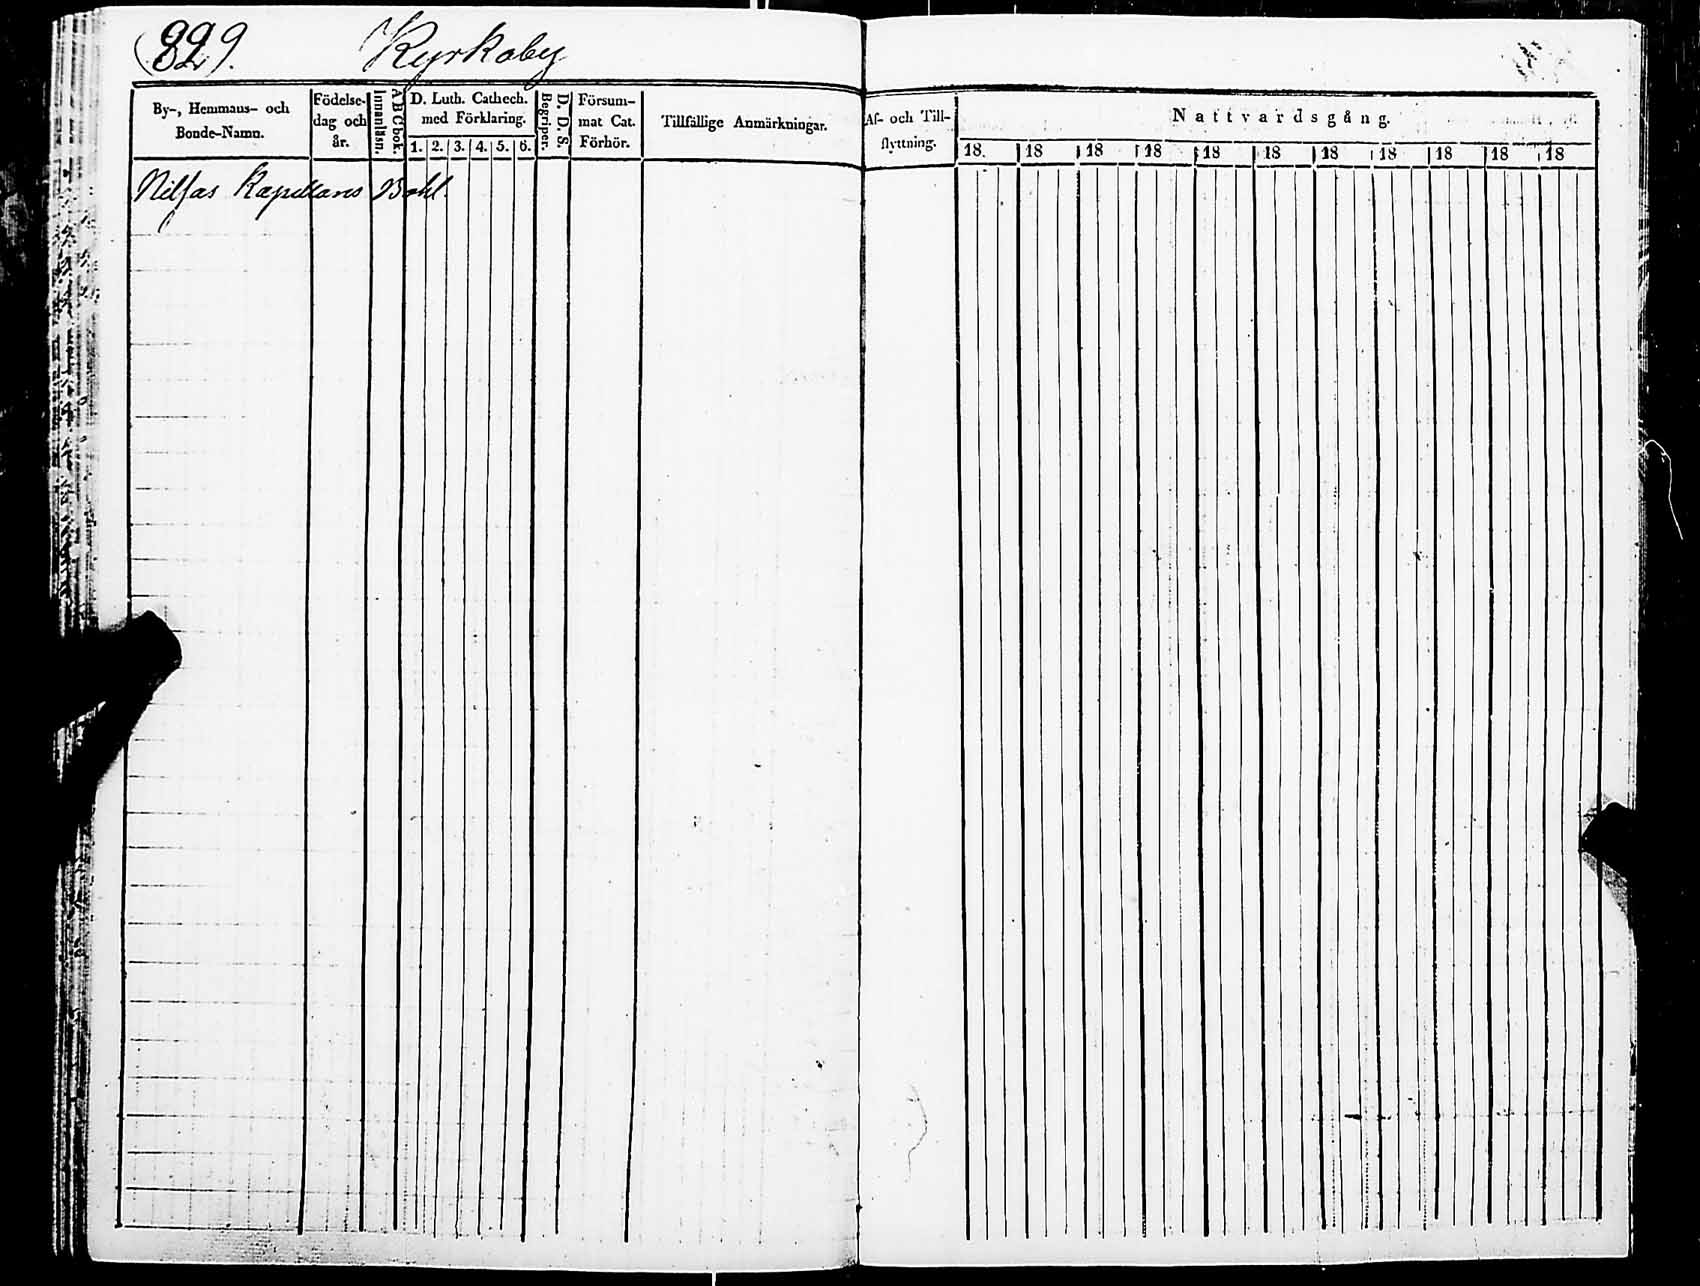 329. Kyrkoby
By-, Hemmans- och Bonde-Namn.
Födelse-dag och år.
Innanläsn.
A B C bok.
D. Luth. Cathech. med Förklaring.
1. 2. 3. 4. 5. 6.
Begriper.
D. D. S.
Försum-mat Cat. Förhör.
Tillfällige Anmärkningar.
Af- och Till-flyttning.
Nattvardsgång.
18. 18 18 18 18 18 18 18 18 18 18
Nilsas Kapellans Bohl.